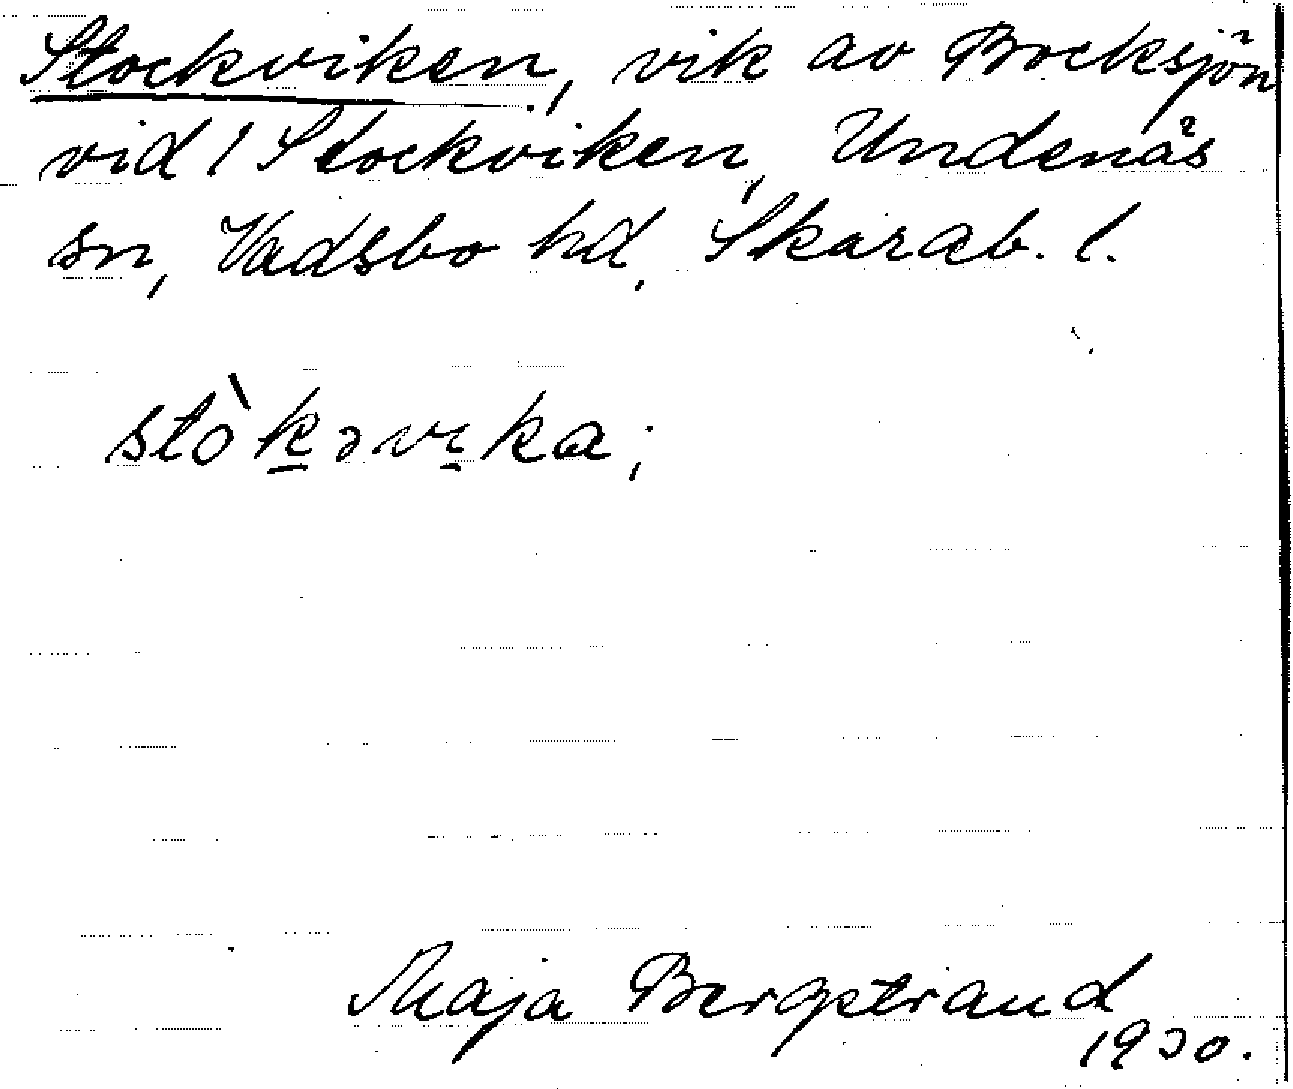 Stockviken, vik av Bocksjön
vid 1 Stockviken, Undenäs
sn, Vadsbo hd, Skarab. l.
stò̀k̠əvi̠ka;
Maja Bergstrand
1930.